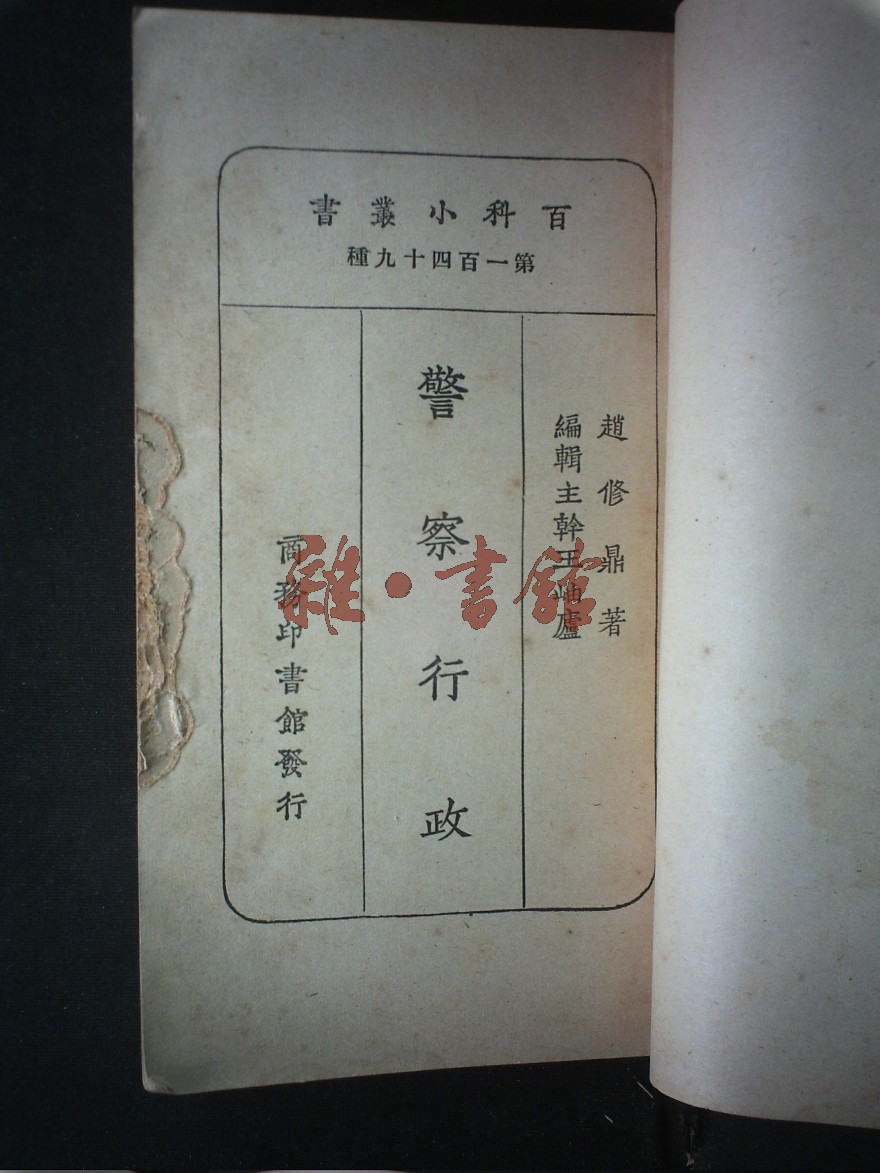 百科小叢書
第一百四十九種
趙修鼎著
編輯主幹王岫廬
警察行政
商務印書館發行
雜·書館